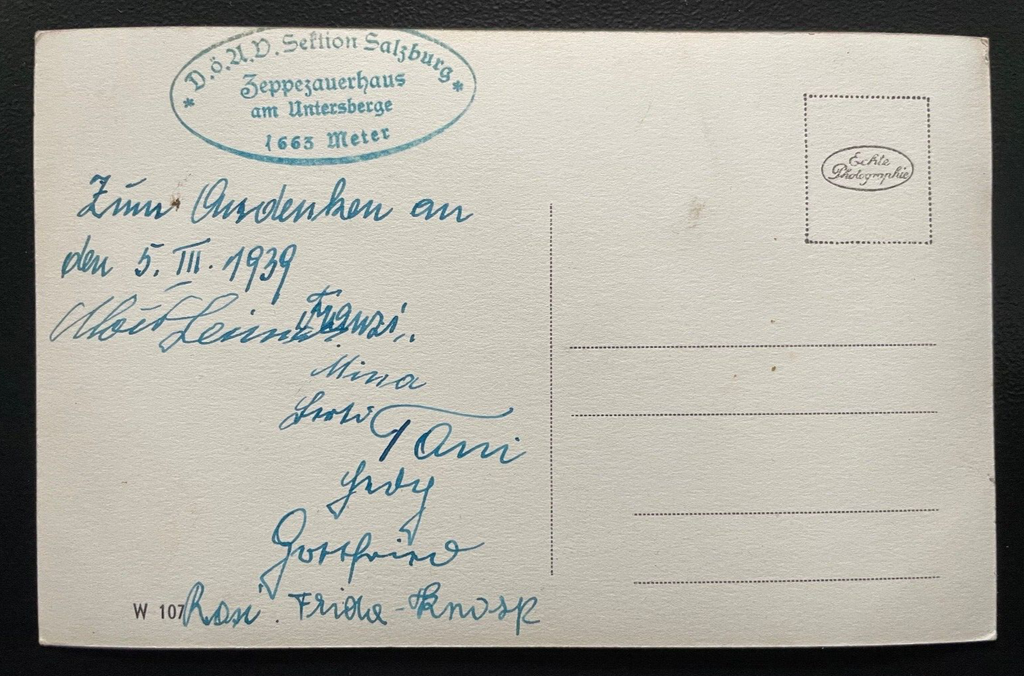 * D.ö.A.V. Sektion Salzburg *
Zeppezauerhaus
am Untersberge
1663 Meter
Echte
Photographie
Zum Andenken an
den 5. III. 1939
Alois Franzi
Mina
Berti Toni
Hedy
Gottfried
W 107 Rosi. Frida - Knosp